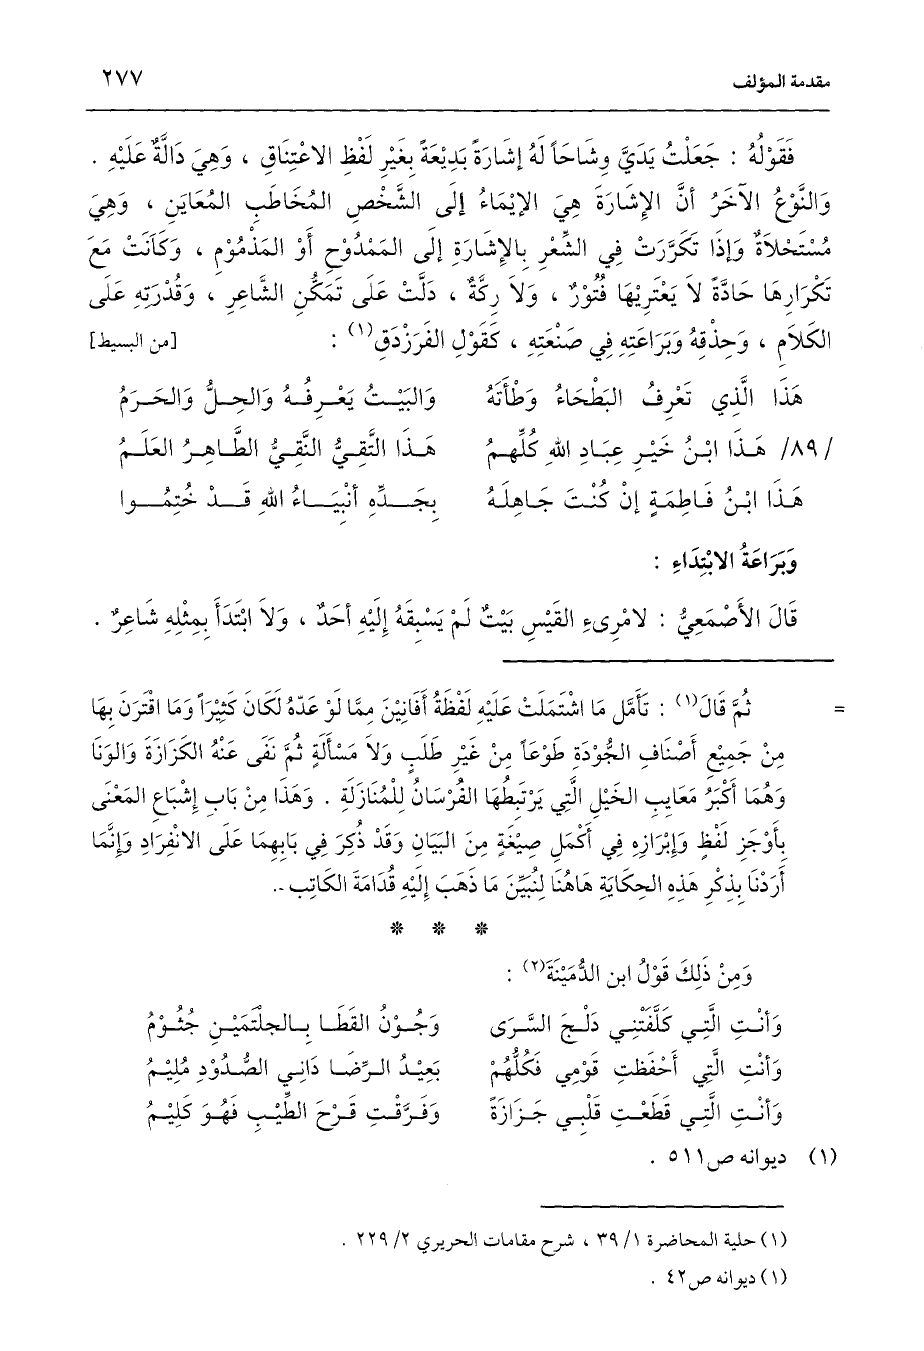 مقدمة المؤلف ٢٧٧
فَقَوْلُهُ : جَعَلْتُ يَدَيَّ وِشَاحَاً لَهُ إشَارَةً بَدِيْعَةً بِغَيْرِ لَفْظِ الاعْتِنَاقِ ، وَهِيَ دَالَّةٌ عَلَيْهِ .
وَالنَّوْعُ الآخَرُ أنَّ الإشَارَةَ هِيَ الإيْمَاءُ إلَى الشَّخْصِ المُخَاطَبِ المُعَايَنِ ، وَهِيَ
مُسْتَحْلاَةٌ وَإذَا تَكَرَّرَتْ فِي الشِّعْرِ بِالإشَارَةِ إلَى المَمْدُوْحِ أوْ المَذْمُوْمِ ، وَكَانَتْ مَعَ
تكْرَارِهَا حَادَّةً لاَ يَعْتَرِيْهَا فُتُوْرٌ ، وَلاَ رِكَّةٌ ، دَلَّتْ عَلَى تَمَكُّنِ الشَّاعِرِ ، وَقُدْرَتِهِ عَلَى
الكَلاَمِ ، وَحِذْقِهُ وَبَرَاعَتِهِ فِي صَنْعَتِهِ ، كَقَوْلِ الفَرَزْدَقِ(١) : [من البسيط]
هَذَا الَّذِي تَعْرِفُ البَطْحَاءُ وَطْأتَهُ وَالبَيْتُ يَعْرِفُهُ وَالحِلُّ وَالحَرَمُ
/٨٩/ هَذَا ابْنُ خَيْرِ عِبَادِ اللهِ كُلِّهِمُ هَذَا التَّقِيُّ النَّقِيُّ الطَّاهِرُ العَلَمُ
هَذَا ابْنُ فَاطِمَةٍ إنْ كُنْتَ جَاهِلَهُ بِجَدِّهِ أنْبِيَاءُ اللهِ قَدْ خُتِمُوا
وَبَرَاعَةُ الابْتِدَاءِ :
قَالَ الأصْمَعِيُّ : لامْرِىءِ القَيْسِ بَيْتٌ لَمْ يَسْبِقَهُ إلَيْهِ أحَدٌ ، وَلاَ ابْتَدَأَ بِمِثْلِهِ شَاعِرٌ .
= ثُمَّ قَالَ(١) : تَأمَّل مَا اشْتَمَلَتْ عَلَيْهِ لَفْظَةُ أفَانِيْنَ مِمَّا لَوْ عَدّهُ لَكَانَ كَثِيْرَاً وَمَا اقْتَرَنَ بِهَا
مِنْ جَمِيْعِ أصْنَافِ الجُّوْدَةِ طَوْعَاً مِنْ غَيْرِ طَلَبٍ وَلاَ مَسْألَةٍ ثُمَّ نَفَى عَنْهُ الكَزَازَةَ وَالوَنَا
وَهُمَا أكْبَرُ مَعَايِبِ الخَيْلِ الَّتِي يَرْتَبِطُهَا الفُرْسَانُ لِلْمُنَازَلَةِ . وَهَذَا مِنْ بَابِ إشْبَاعِ المَعْنَى
بِأوْجَزِ لَفْظٍ وَإبْرَازِهِ فِي أكْمَلِ صِيْغَةٍ مِنَ البَيَانِ وَقَدْ ذُكِرَ فِي بَابِهِمَا عَلَى الانْفِرَادِ وَإنَّمَا
أرَدْنَا بِذِكْرِ هَذِهِ الحِكَايَةِ هَاهُنَا لِنُبَيِّنَ مَا ذَهَبَ إلَيْهِ قُدَامَةَ الكَاتِب -.
* * *
وَمِنْ ذَلِكَ قَوْلُ ابن الدُّمَيْنَةَ(٢) :
وَأنْتِ الَّتِي كَلَّفْتِنِي دَلَجَ السَّرَى وَجُوْنُ القَطَا بِالجلْتَمَيْنِ جُثُوْمُ
وَأنْتِ الَّتِي أحْفَظتِ قَوْمِي فَكُلُّهُمْ بَعِيْدُ الرِّضَا دَانِي الصُّدُوْدِ مُلِيْمُ
وَأنْتِ الَّتِي قَطَّعْتِ قَلْبِي حَزَازَةً وَفَرَّقْتِ قَرْحَ الطِّيْبِ فَهُوَ كَلِيْمُ
(١) ديوانه ص٥١١ .
(١) حلية المحاضرة ٣٩/١ ، شرح مقامات الحريري ٢٢٩/٢ .
(١) ديوانه ص٤٢ .